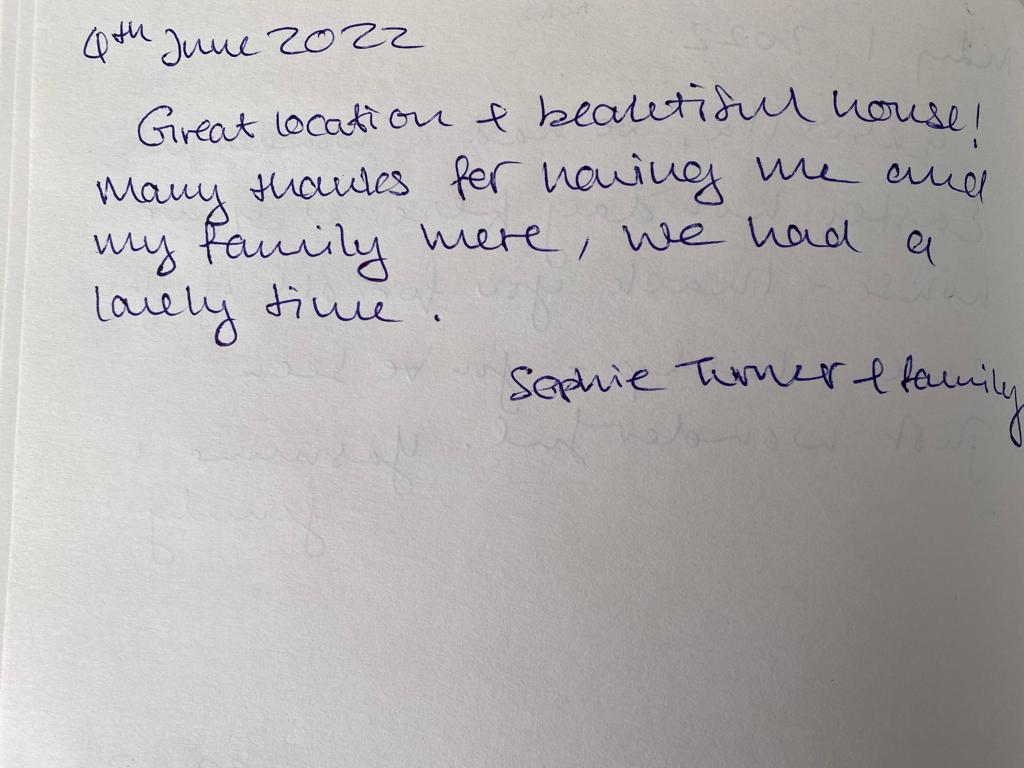 4th June 2022
Great location & beautiful house!
Many thanks for having me and
my family here, we had a
lovely time.
Sophie Turner & family